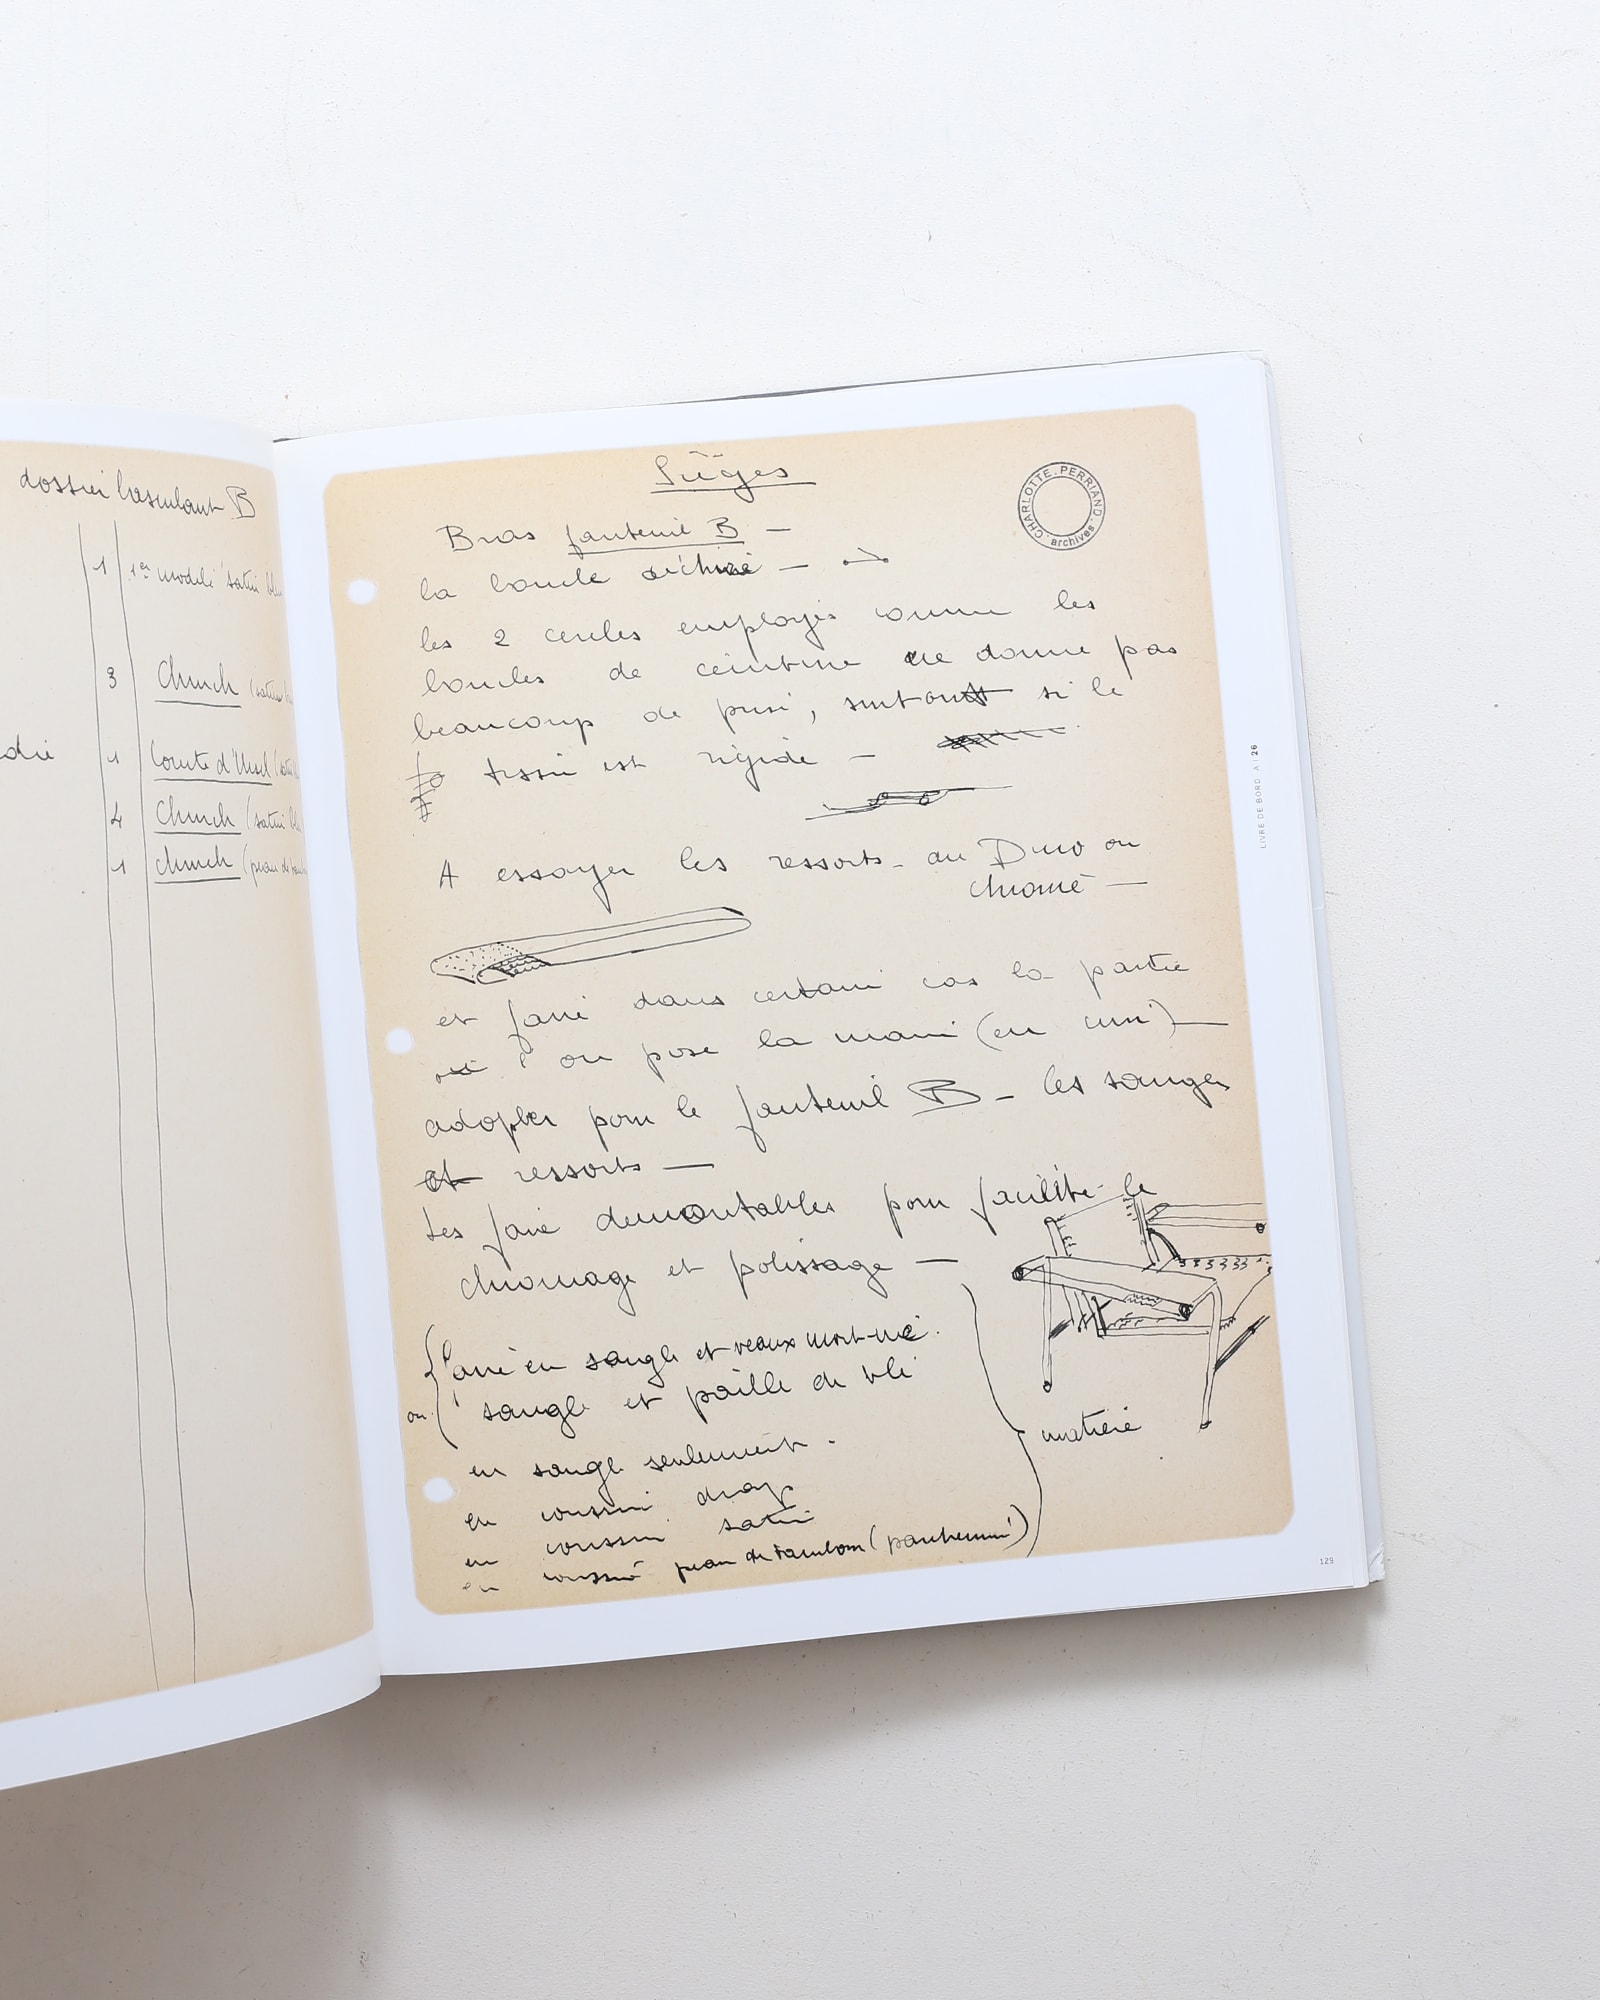 dossier basculant B
1 1er modèle satin
3 Church
1 Comte d'Ursel
4 Church (satin
1 Church (peau de
Sièges
CHARLOTTE.PERRIAND. archives
Bras fauteuil B —
la boucle —
les 2 cercles employés comme les
boucles de ceinture ne donne pas
beaucoup de prise, surtout si le
tissu est rigide —
A essayer les ressorts - au Duco ou
chromé —
et faire dans certain cas la partie
où l'on pose la main (en cuir) —
adopter pour le fauteuil B — les sangles
et ressorts —
Les faire démontables pour facilité le
chromage et polissage —
Faire en sangle et veaux mort-né.
ou sangle et paille de blé
en sangle seulement.
matière
en coussin drap
en coussin satin
en coussin peau de tambour (parchemin)
LIVRE DE BORD A | 26
129